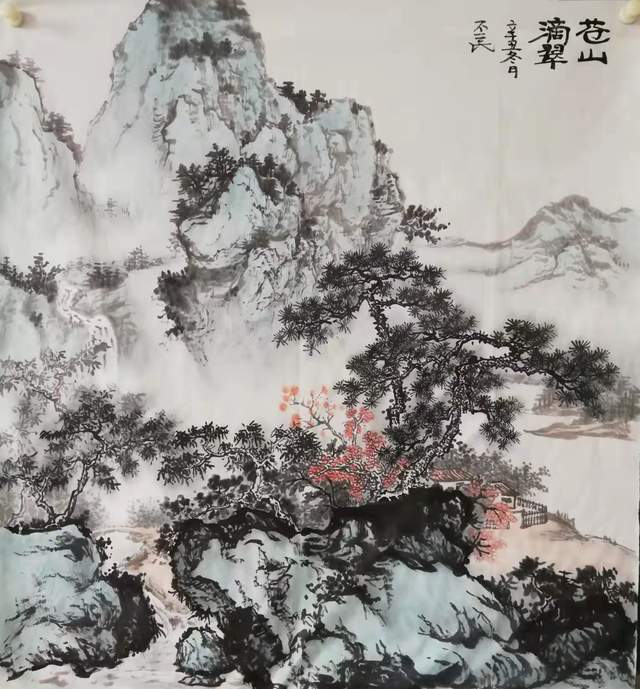 苍山
滴翠
辛丑冬月
不民